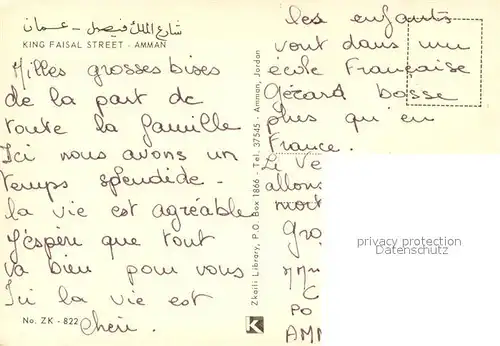 شارع الملك فيصل - عمان
KING FAISAL STREET - AMMAN
Milles grosses bises
de la part de
toute la famille
Ici nous avons un
temps splendide -
la vie est agréable
J'espère que tout
va bien pour vous
Ici la vie est
chère.
No. ZK - 822
Zkaili Library, P.O. Box 1866 - Tel. 37545 - Amman, Jordan
K
les enfants
vont dans une
école Française
Gérard bosse
plus qu'en
France.
Le Ve
allons
Gro
PO
AMM
privacy protection
Datenschutz